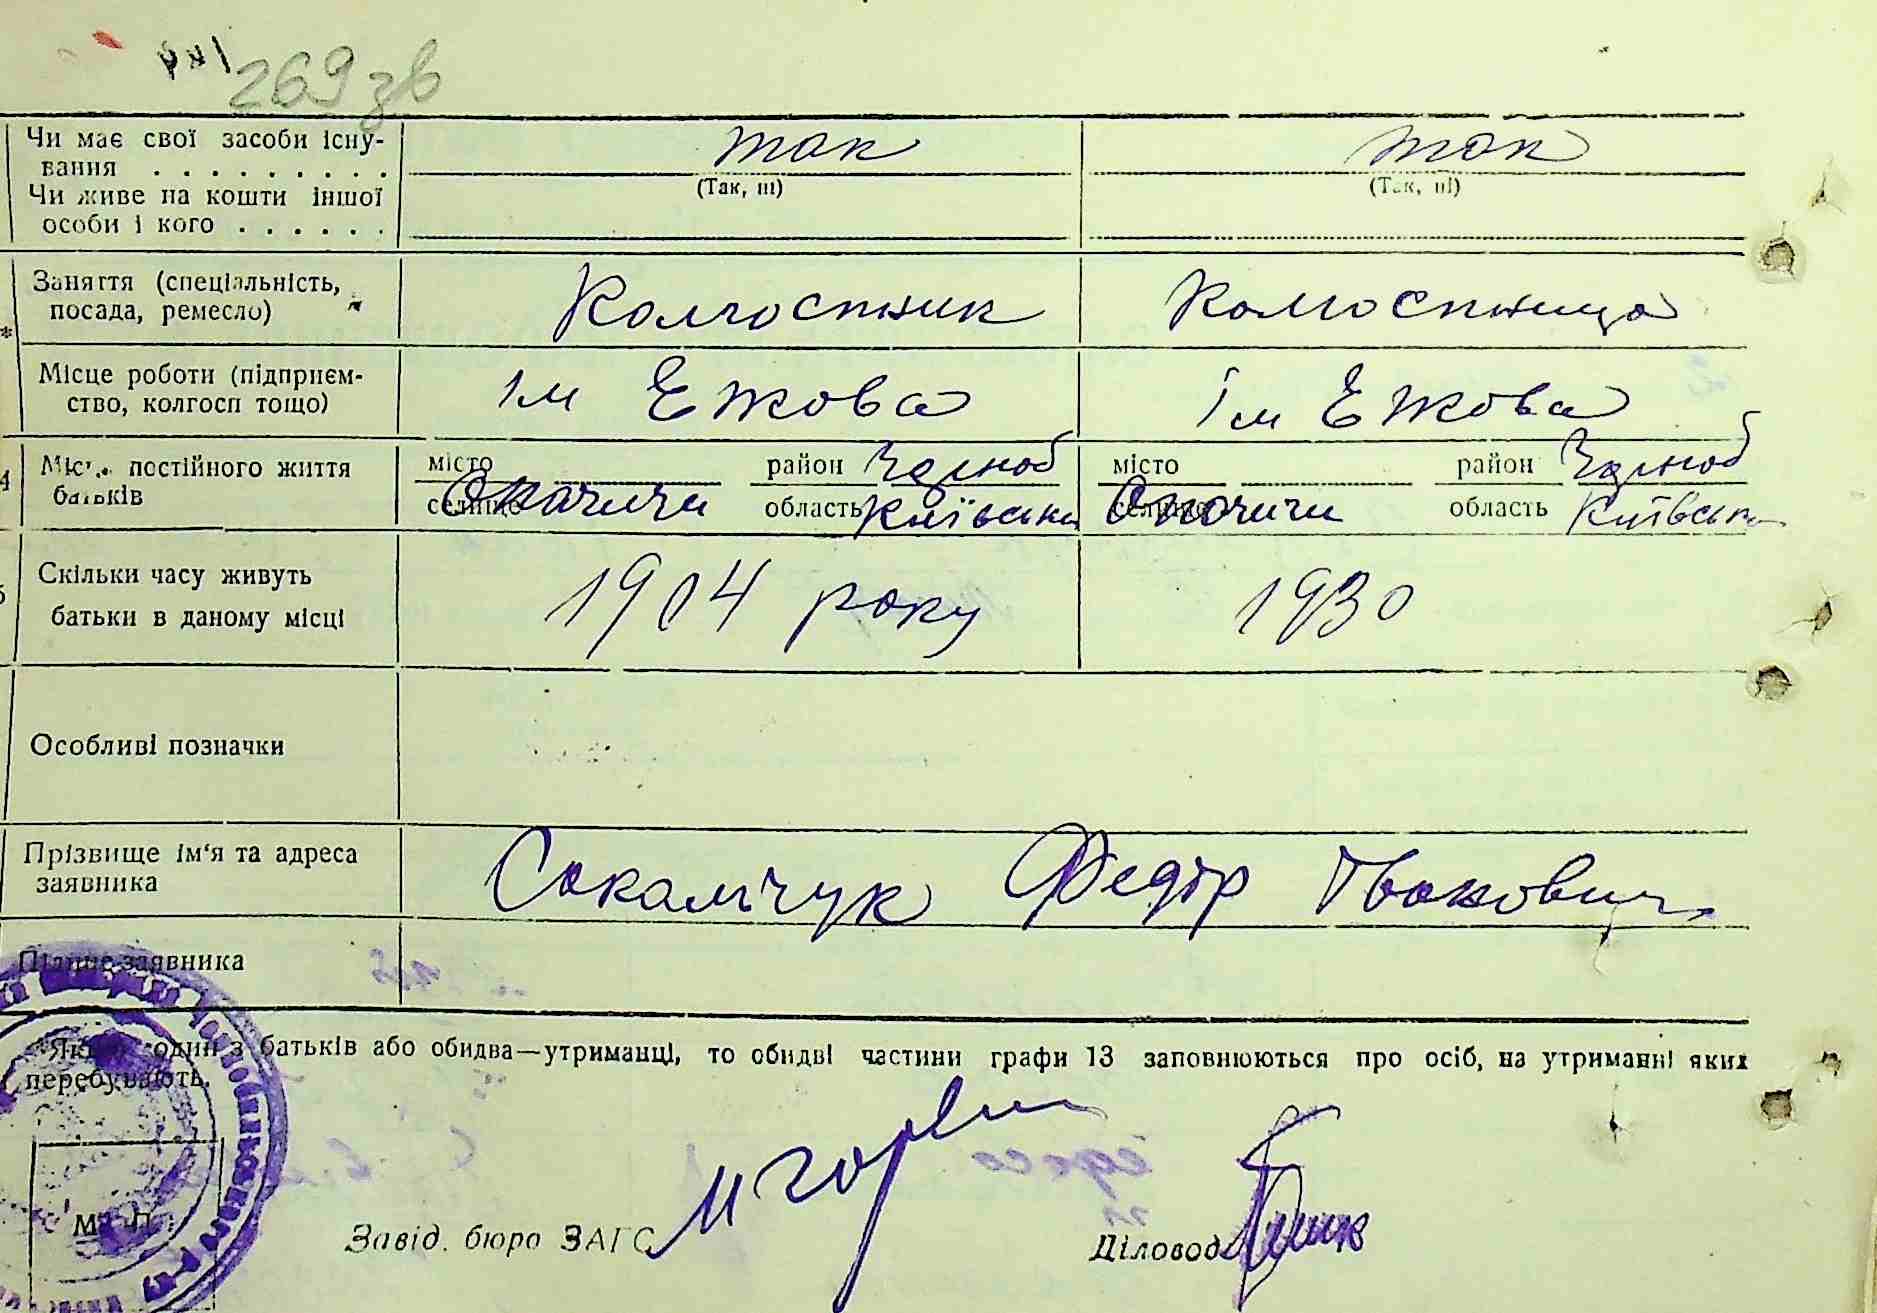 269 зв
Чи має свої засоби існу- так так
вання . . . . . . . . . (Так, ні) (Так, ні)
Чи живе на кошти іншої
особи і кого . . . . . .
Заняття (спеціальність, Колгоспник Колгоспница
посада, ремесло)
Місце роботи (підприєм- ім Ежова ім Ежова
ство, колгосп тощо)
Місце постійного життя місто район Чорноб місто район Чорноб
батьків селище Опачичи область Київська селище Опачичи область Київська
Скільки часу живуть 1904 року 1930
батьки в даному місці
Особливі позначки
Прізвище ім'я та адреса Сокальчук Федір Іванович
заявника
Підпис заявника
Якщо один з батьків або обидва—утриманці, то обидві частини графи 13 заповнюються про осіб, на утриманні яких
перебувають.
М. П.
Завід. бюро ЗАГС Діловод